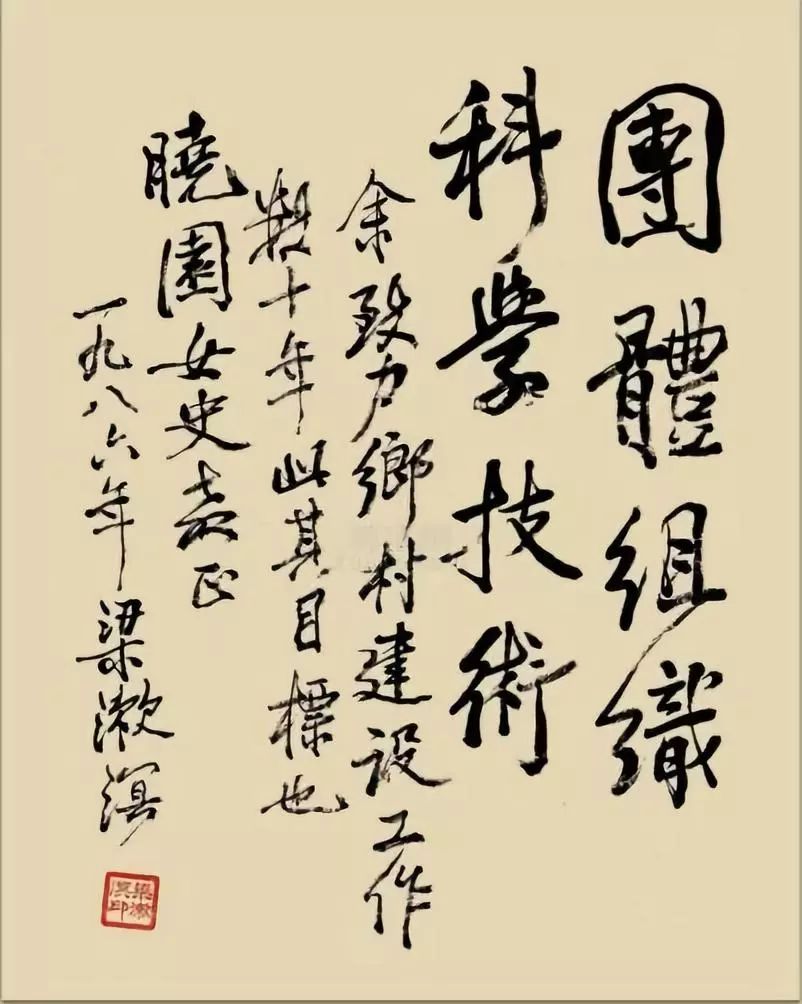 團體組織
科學技術
余致力鄉村建設工作
數十年此其目標也
曉園女史正
一九八六年梁漱溟
梁漱溟印